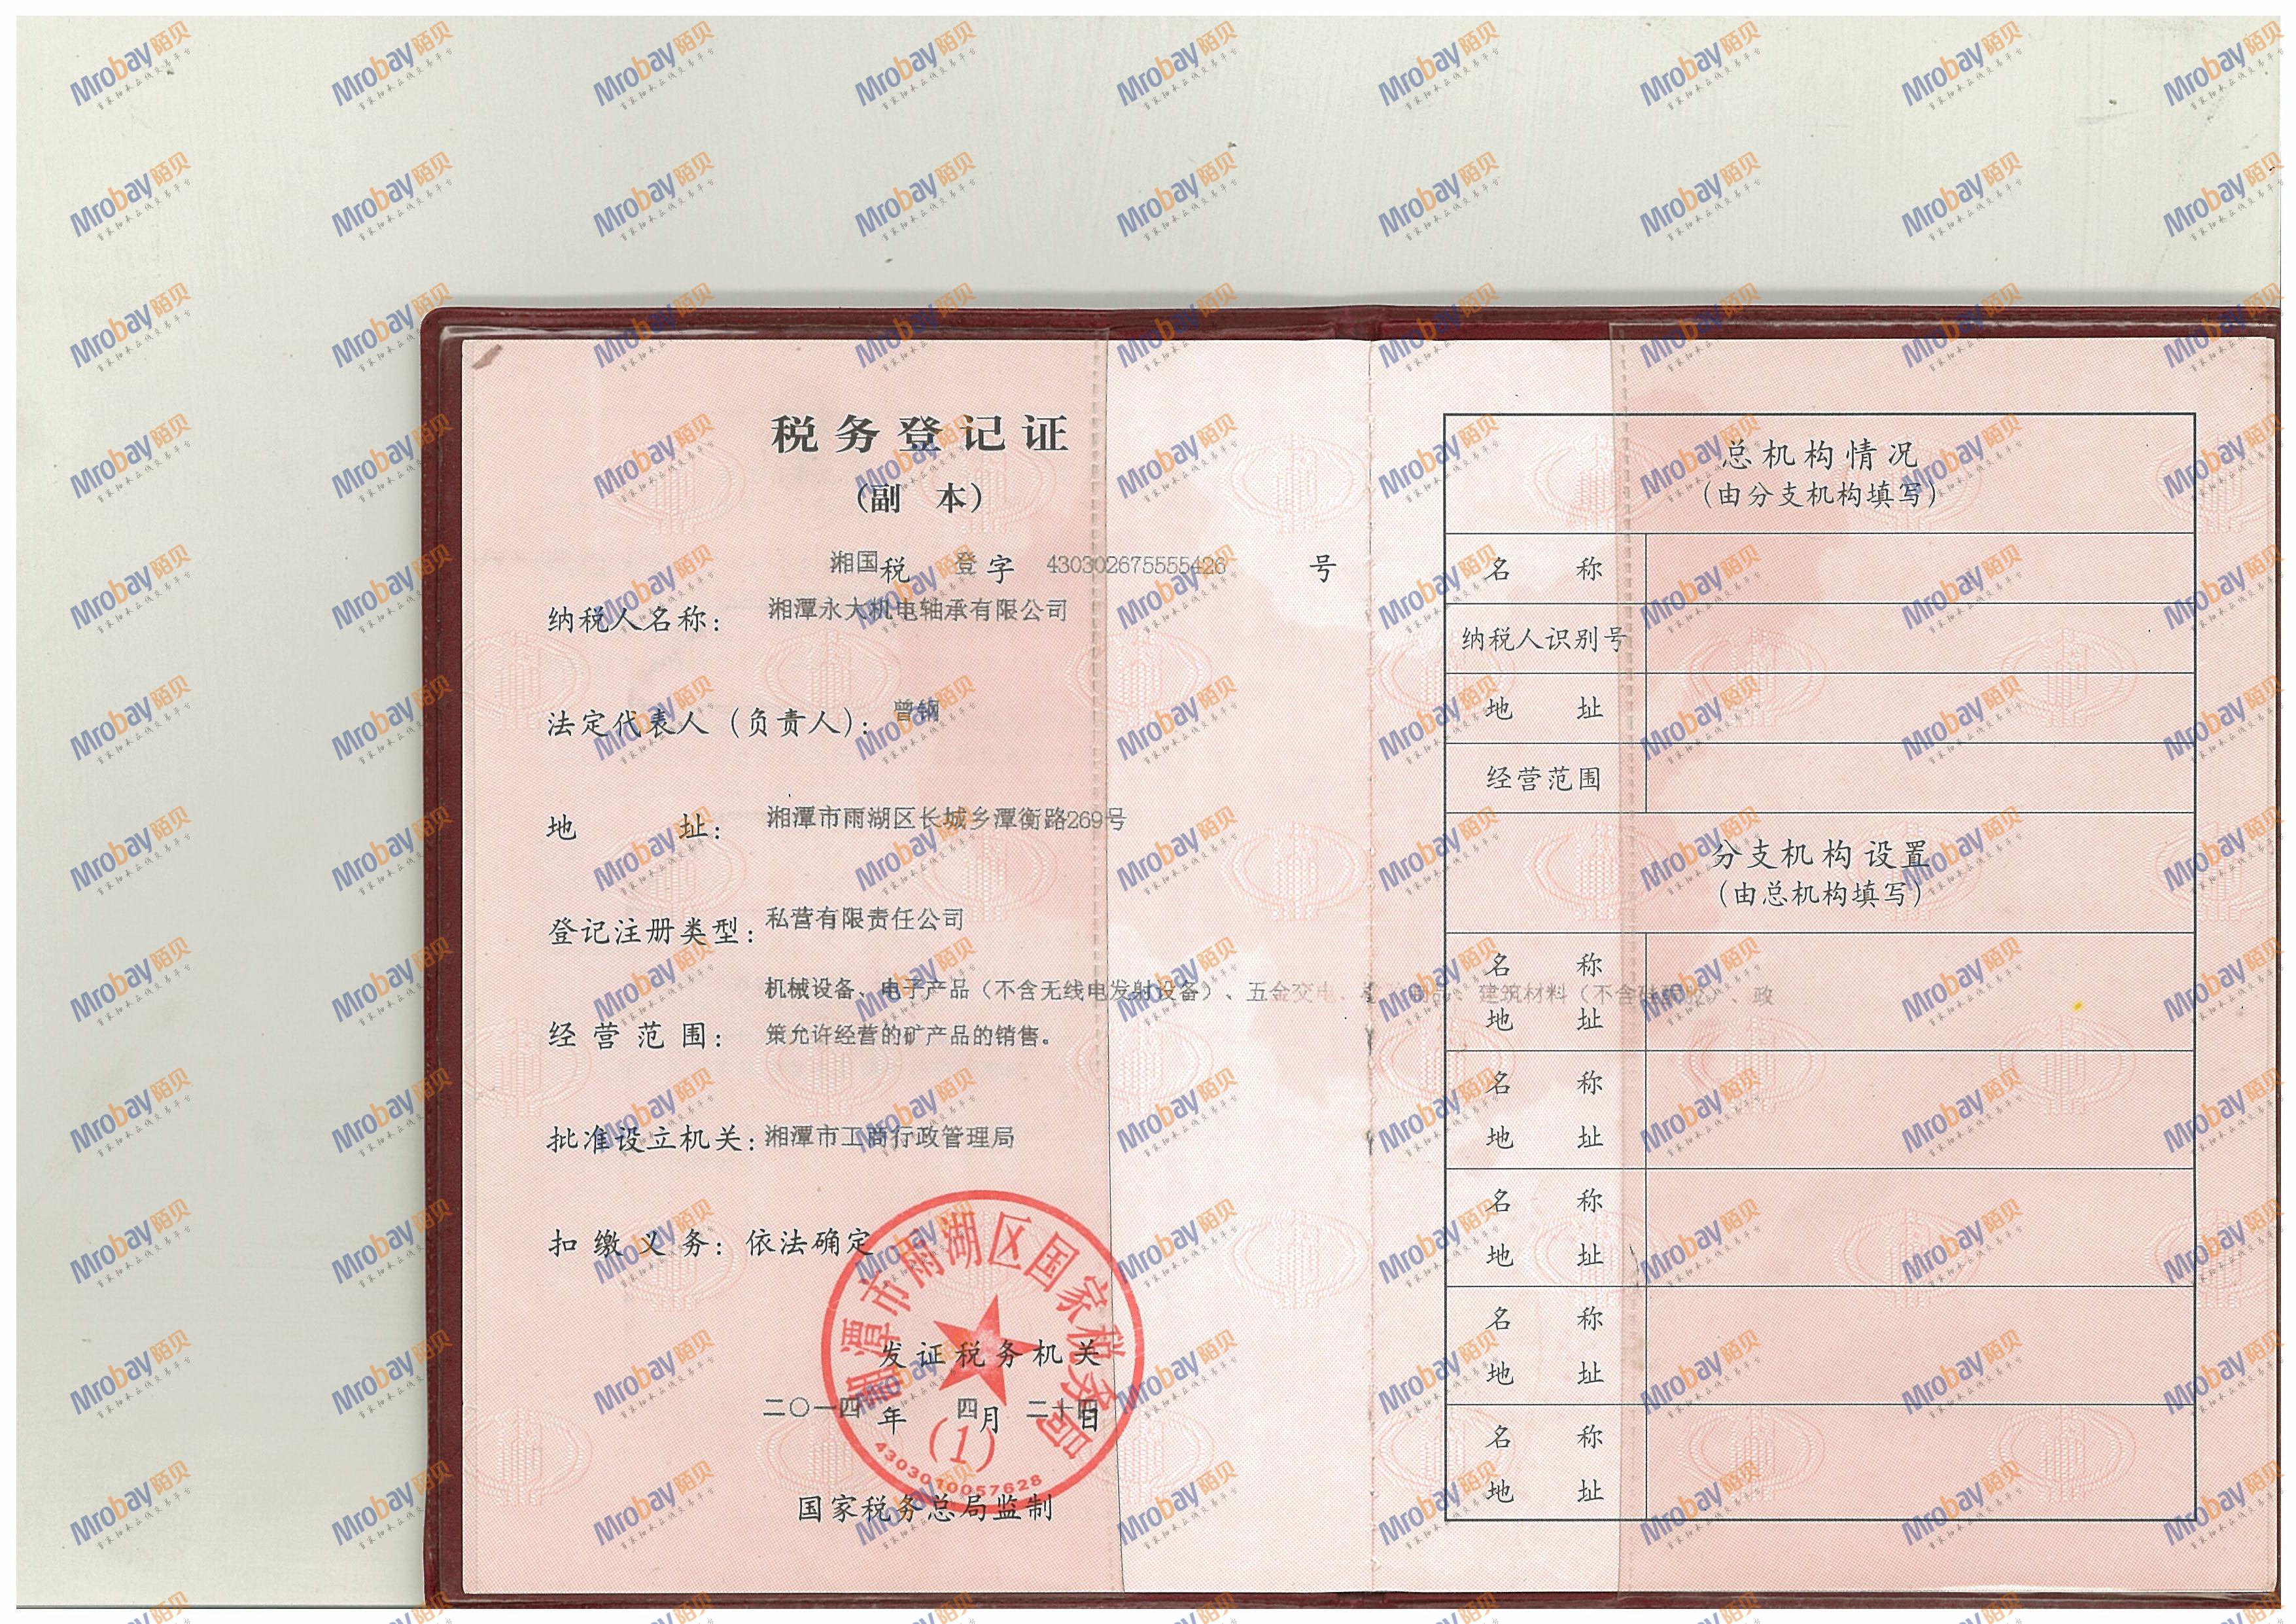 税务登记证
（副 本）
湘国税 登字 430302675555426 号
纳税人名称： 湘潭永大机电轴承有限公司
法定代表人（负责人）： 曾钢
地 址： 湘潭市雨湖区长城乡潭衡路269号
登记注册类型： 私营有限责任公司
机械设备、电子产品（不含无线电发射设备）、五金交电、 、建筑材料（不含硅酮胶）、政
经营范围： 策允许经营的矿产品的销售。
批准设立机关： 湘潭市工商行政管理局
扣缴义务： 依法确定
湘潭市雨湖区国家税务局
发证税务机关
二〇一四 年 四月 二十四日
(1)
4303010057628
国家税务总局监制
总机构情况
（由分支机构填写）
名 称
纳税人识别号
地 址
经营范围
分支机构设置
（由总机构填写）
名 称
地 址
名 称
地 址
名 称
地 址
名 称
地 址
名 称
地 址
Mrobay陌贝